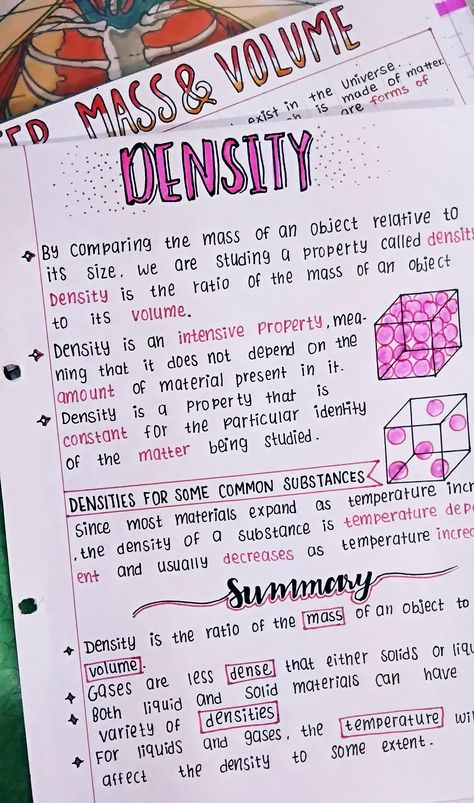 MASS & VOLUME
exist in the Universe.
is made of matter.
are forms of
DENSITY
By comparing the mass of an object relative to
its size, we are studing a property called density
Density is the ratio of the mass of an object
to its volume.
Density is an intensive Property, mea-
ning that it does not depend on the
amount of material present in it.
Density is a Property that is
constant for the particular identity
of the matter being studied.
DENSITIES FOR SOME COMMON SUBSTANCES
Since most materials expand as temperature incr
, the density of a substance is temperature dep
ent and usually decreases as temperature increa
Summary
Density is the ratio of the mass of an object to
volume.
Gases are less dense that either solids or liqu
Both liquid and solid materials can have
variety of densities
For liquids and gases, the temperature wi
affect the density to some extent.